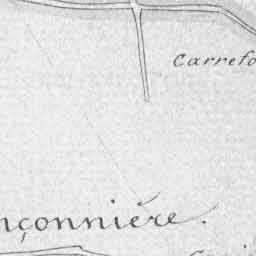 Carrefo
nçonnière.